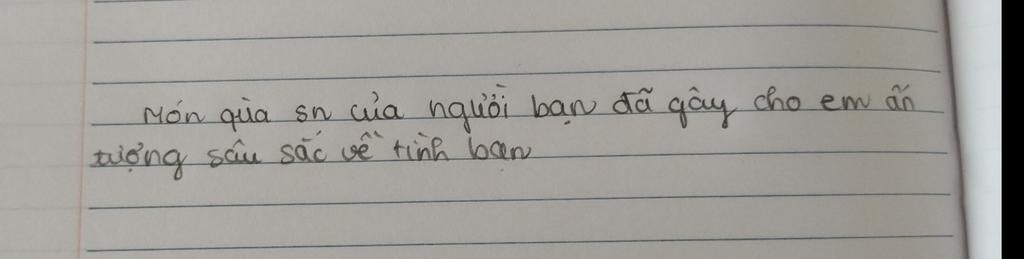 Món qùa sn của người bạn đã gây cho em ấn
tượng sâu sắc về tình bạn